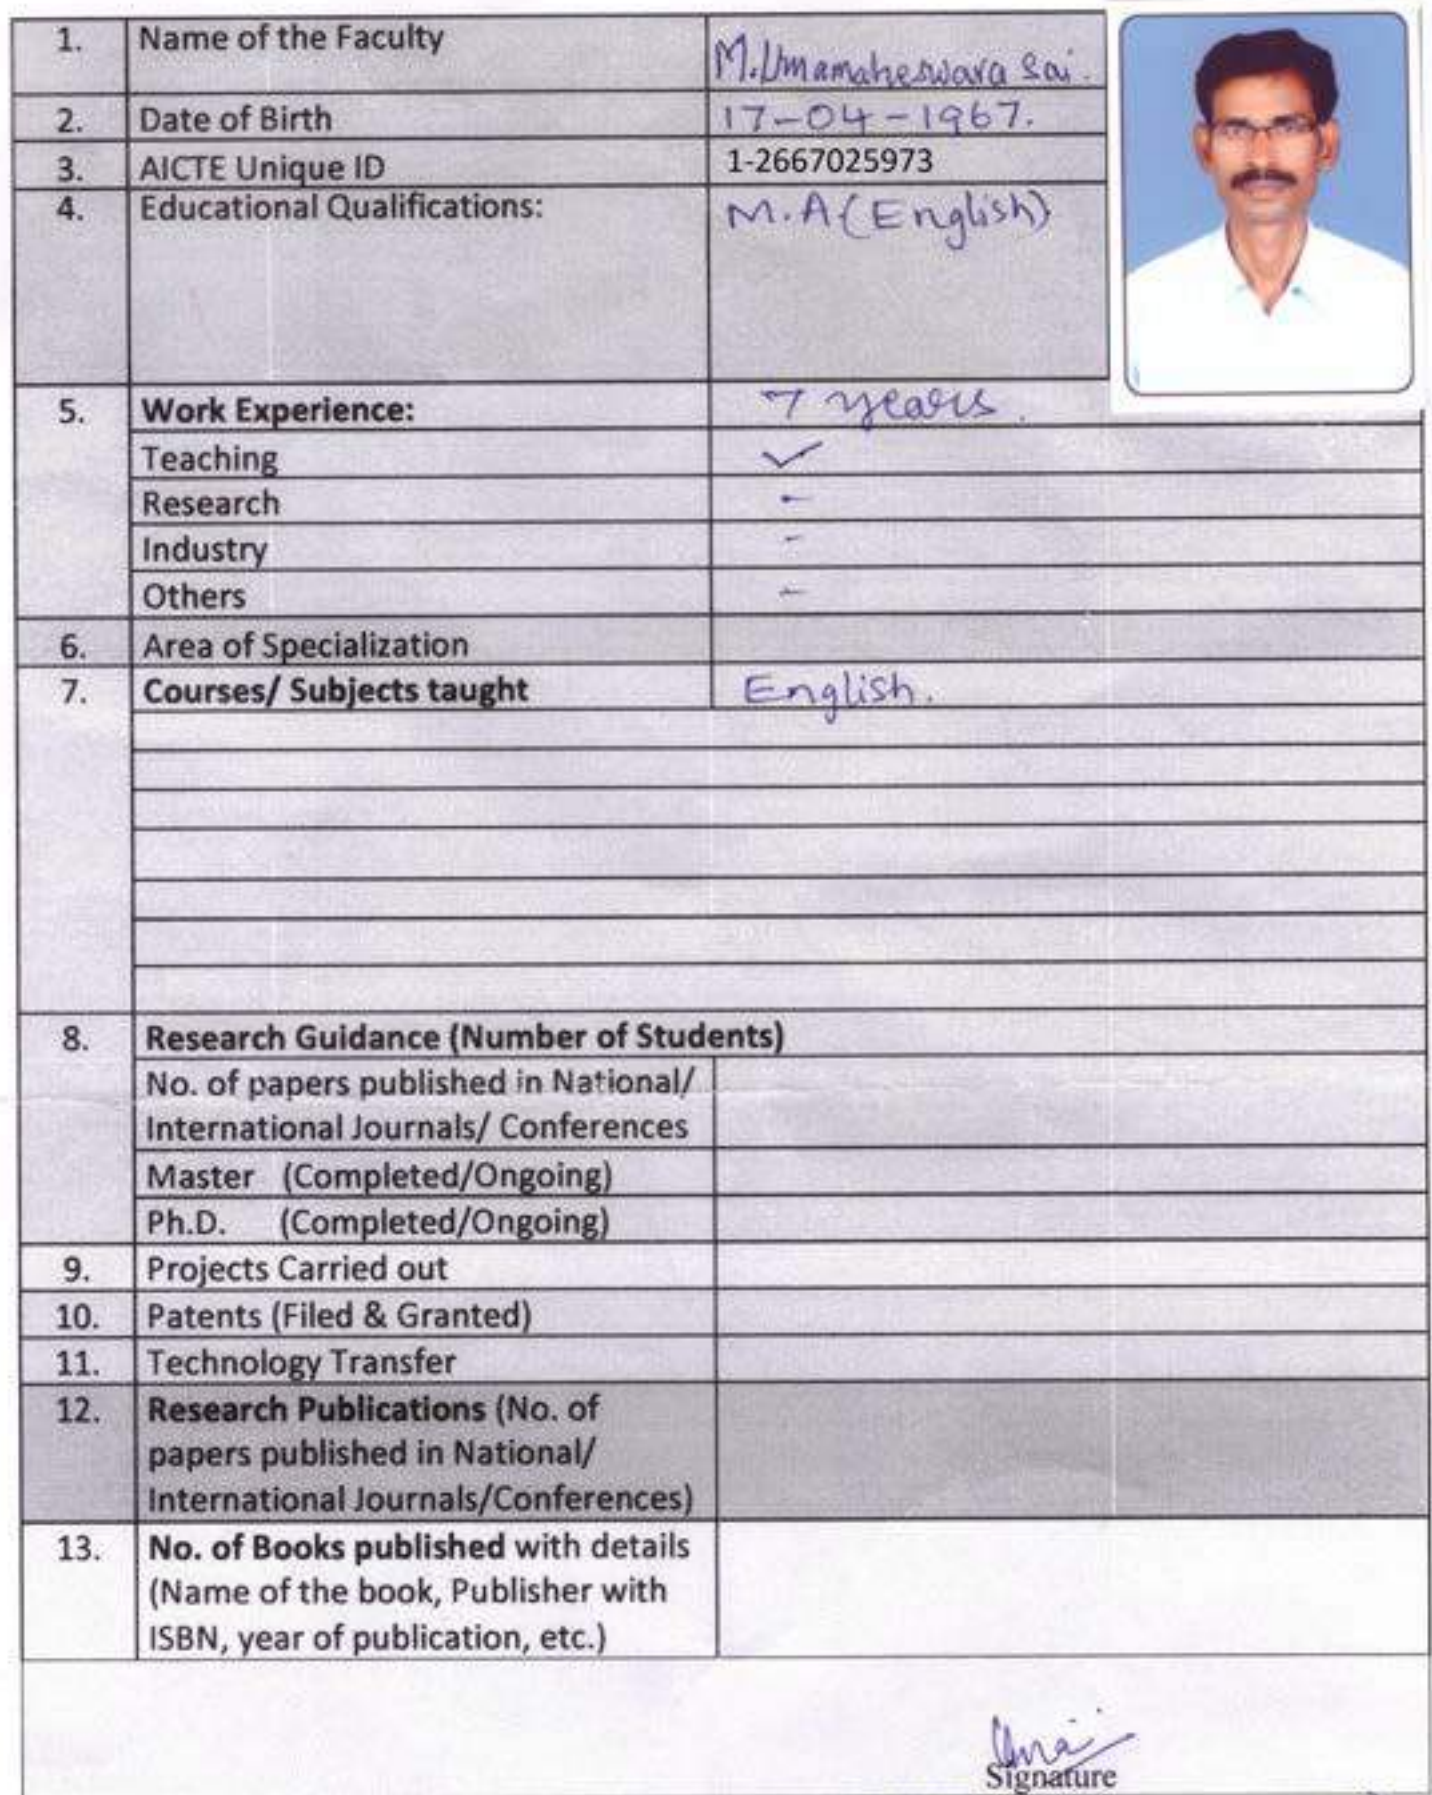 1. Name of the Faculty M.Umamaheswara Sai.
2. Date of Birth 17-04-1967.
3. AICTE Unique ID 1-2667025973
4. Educational Qualifications: M.A (English)
5. Work Experience: 7 years.
Teaching ✓
Research -
Industry -
Others -
6. Area of Specialization
7. Courses/ Subjects taught English.
8. Research Guidance (Number of Students)
No. of papers published in National/
International Journals/ Conferences
Master (Completed/Ongoing)
Ph.D. (Completed/Ongoing)
9. Projects Carried out
10. Patents (Filed & Granted)
11. Technology Transfer
12. Research Publications (No. of
papers published in National/
International Journals/Conferences)
13. No. of Books published with details
(Name of the book, Publisher with
ISBN, year of publication, etc.)
Signature